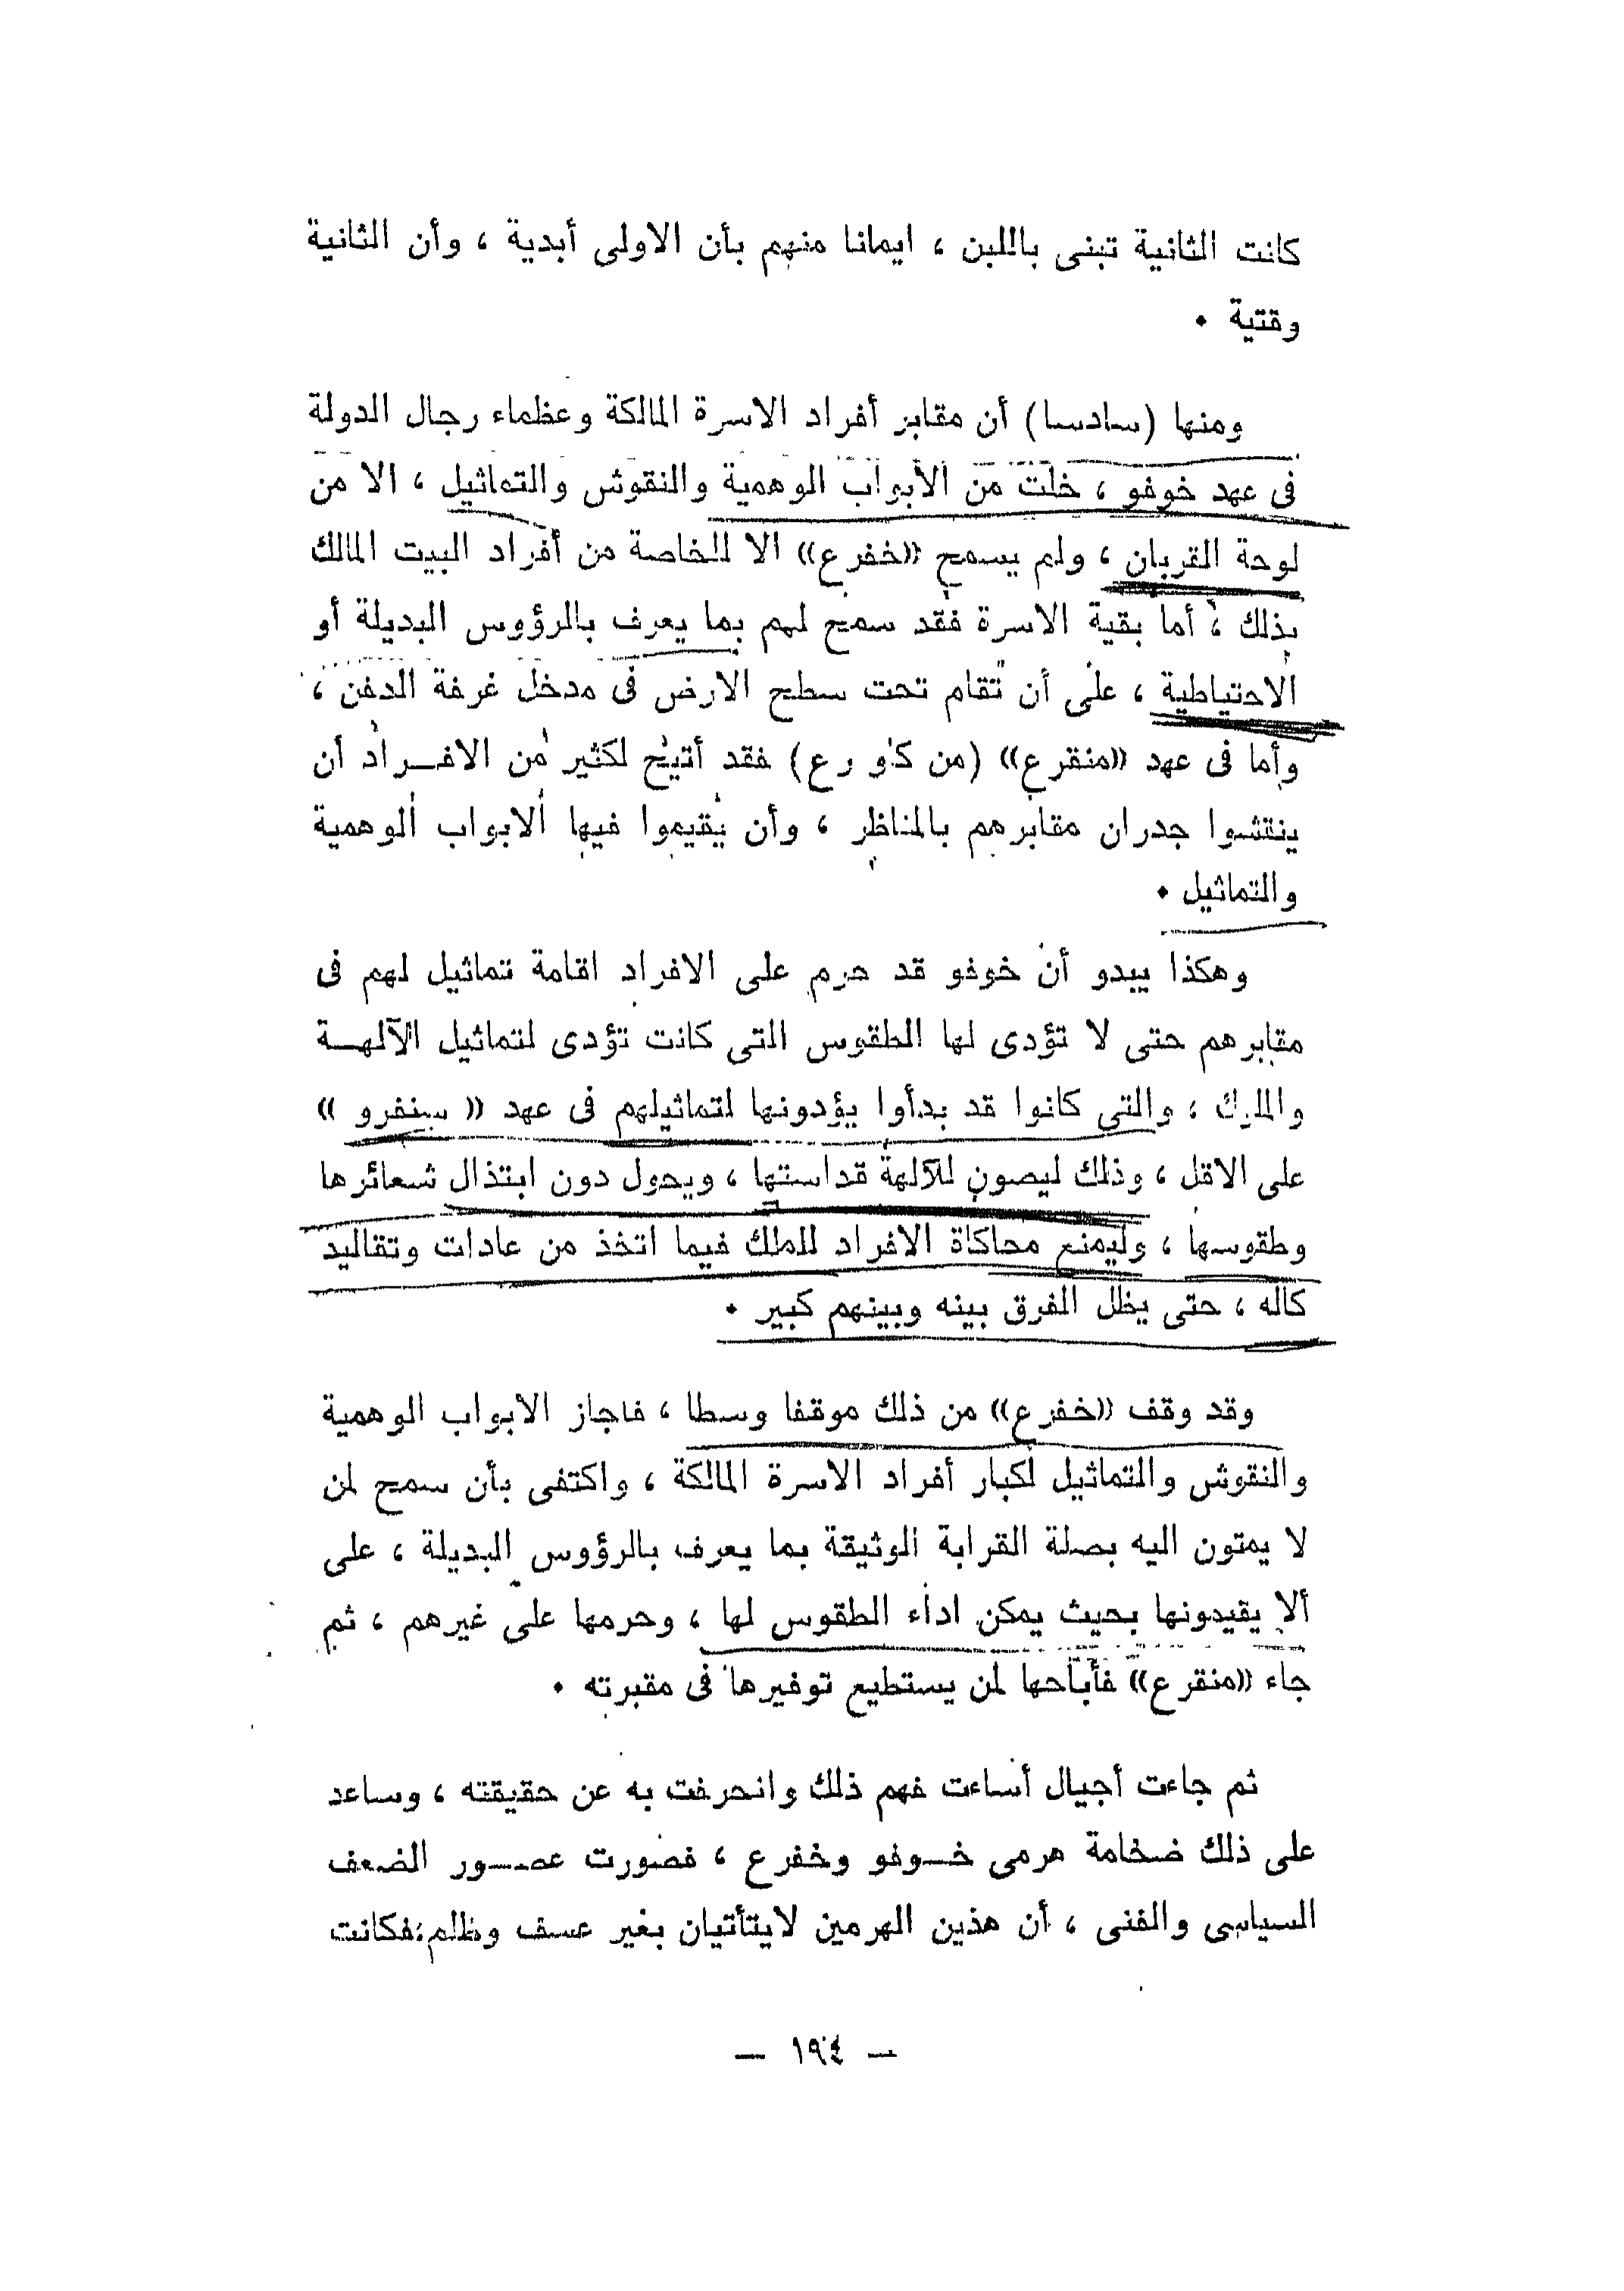 كانت الثانية تبنى باللبن ، ايمانا منهم بأن الاولى أبدية ، وأن الثانية
وقتية .
ومنها (سادسا) أن مقابر أفراد الاسرة المالكة وعظماء رجال الدولة
فى عهد خوفو ، خلت من الأبواب الوهمية والنقوش والتماثيل ، الا من
لوحة القربان ، ولم يسمح «خفرع» الا للخاصة من أفراد البيت المالك
بذلك ، أما بقية الاسرة فقد سمح لهم بما يعرف بالرؤوس البديلة أو
الاحتياطية ، على أن تقام تحت سطح الارض فى مدخل غرفة الدفن ،
وأما فى عهد «منقرع» (من كاو رع) فقد أتيح لكثير من الافـراد أن
ينقشوا جدران مقابرهم بالمناظر ، وأن يقيموا فيها الابواب الوهمية
والتماثيل .
وهكذا يبدو أن خوفو قد حرم على الافراد اقامة تماثيل لهم فى
مقابرهم حتى لا تؤدى لها الطقوس التى كانت تؤدى لتماثيل الآلهـة
والملوك ، والتى كانوا قد بدأوا يؤدونها لتماثيلهم فى عهد « سنفرو »
على الاقل ، وذلك ليصون للآلهة قداستها ، ويحول دون ابتذال شعائرها
وطقوسها ، وليمنع محاكاة الافراد للملك فيما اتخذ من عادات وتقاليد
كاله ، حتى يظل الفرق بينه وبينهم كبير .
وقد وقف «خفرع» من ذلك موقفا وسطا ، فاجاز الابواب الوهمية
والنقوش والتماثيل لكبار أفراد الاسرة المالكة ، واكتفى بأن سمح لمن
لا يمتون اليه بصلة القرابة الوثيقة بما يعرف بالرؤوس البديلة ، على
ألا يقيدونها بحيث يمكن اداء الطقوس لها ، وحرمها على غيرهم ، ثم
جاء «منقرع» فأباحها لمن يستطيع توفيرها فى مقبرته .
ثم جاءت أجيال أساءت فهم ذلك وانحرفت به عن حقيقته ، وساعد
على ذلك ضخامة هرمى خـوفو وخفرع ، فصورت عصـور الضعف
السياسى والفنى ، أن هذين الهرمين لايتأتيان بغير عسف وظلم ، فكانت
— ١٩٤ —